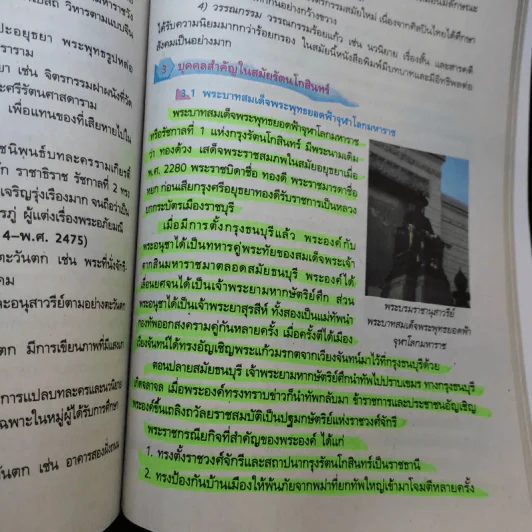 ปะอยุธยา พระพุทธรูปหล่อ
ยา เช่น จิตรกรรมฝาผนังที่วัด
ะศรีรัตนศาสดาราม
เพื่อแทนของที่เสียหายไปใน
ชนิพนธ์บทละครรามเกียรติ์
ัก ราชาธิราช รัชกาลที่ 2 ทรง
เจริญรุ่งเรืองมาก จนถือว่าเป็น
รภู่ ผู้แต่งเรื่องพระอภัยมณี
4–พ.ศ. 2475)
ตะวันตก เช่น พระที่นั่งจักรี
คม
ละอนุสาวรีย์ตามอย่างตะวันตก
ตก มีการเขียนภาพที่มีแสงเงา
การแปลบทละครและนวนิยาย
ฉพาะในหมู่ผู้ได้รับการศึกษา
วันตก เช่น อาคารสองฝั่งถนน
กันอย่างกว้างขวาง
4) วรรณกรรม วรรณกรรมร้อยแก้ว เช่น นวนิยาย เรื่องสั้น และสารคดี
ได้รับความนิยมมากกว่าร้อยกรอง ในสมัยนี้หนังสือพิมพ์มีบทบาทและมีอิทธิพลต่อ
สังคมเป็นอย่างมาก
3 บุคคลสำคัญในสมัยรัตนโกสินทร์
3.1 พระบาทสมเด็จพระพุทธยอดฟ้าจุฬาโลกมหาราช
พระบาทสมเด็จพระพุทธยอดฟ้าจุฬาโลกมหาราช
หรือรัชกาลที่ 1 แห่งกรุงรัตนโกสินทร์ มีพระนามเดิม
ว่า ทองด้วง เสด็จพระราชสมภพในสมัยอยุธยาเมื่อ
พ.ศ. 2280 พระราชบิดาชื่อ ทองดี พระราชมารดาชื่อ
หยก ก่อนเสียกรุงศรีอยุธยาทองดีรับราชการเป็นหลวง
ยกกระบัตรเมืองราชบุรี
เมื่อมีการตั้งกรุงธนบุรีแล้ว พระองค์กับ
พระอนุชาได้เป็นทหารคู่พระทัยของสมเด็จพระเจ้า
ตากสินมหาราชมาตลอดสมัยธนบุรี พระองค์ได้
เลื่อนยศจนได้เป็นเจ้าพระยามหากษัตริย์ศึก ส่วน
พระอนุชาได้เป็นเจ้าพระยาสุรสีห์ ทั้งสองเป็นแม่ทัพนำ
กองทัพออกสงครามคู่กันหลายครั้ง เมื่อครั้งตีได้เมือง
เวียงจันทน์ได้ทรงอัญเชิญพระแก้วมรกตจากเวียงจันทน์มาไว้ที่กรุงธนบุรีด้วย
พระบรมราชานุสาวรีย์
พระบาทสมเด็จพระพุทธยอดฟ้า
จุฬาโลกมหาราช
ตอนปลายสมัยธนบุรี เจ้าพระยามหากษัตริย์ศึกนำทัพไปปราบเขมร ทางกรุงธนบุรี
เกิดจลาจล เมื่อพระองค์ทรงทราบข่าวก็นำทัพกลับมา ข้าราชการและประชาชนอัญเชิญ
พระองค์ขึ้นเถลิงถวัลยราชสมบัติเป็นปฐมกษัตริย์แห่งราชวงศ์จักรี
พระราชกรณียกิจที่สำคัญของพระองค์ ได้แก่
1. ทรงตั้งราชวงศ์จักรีและสถาปนากรุงรัตนโกสินทร์เป็นราชธานี
2. ทรงป้องกันบ้านเมืองให้พ้นภัยจากพม่าที่ยกทัพใหญ่เข้ามาโจมตีหลายครั้ง